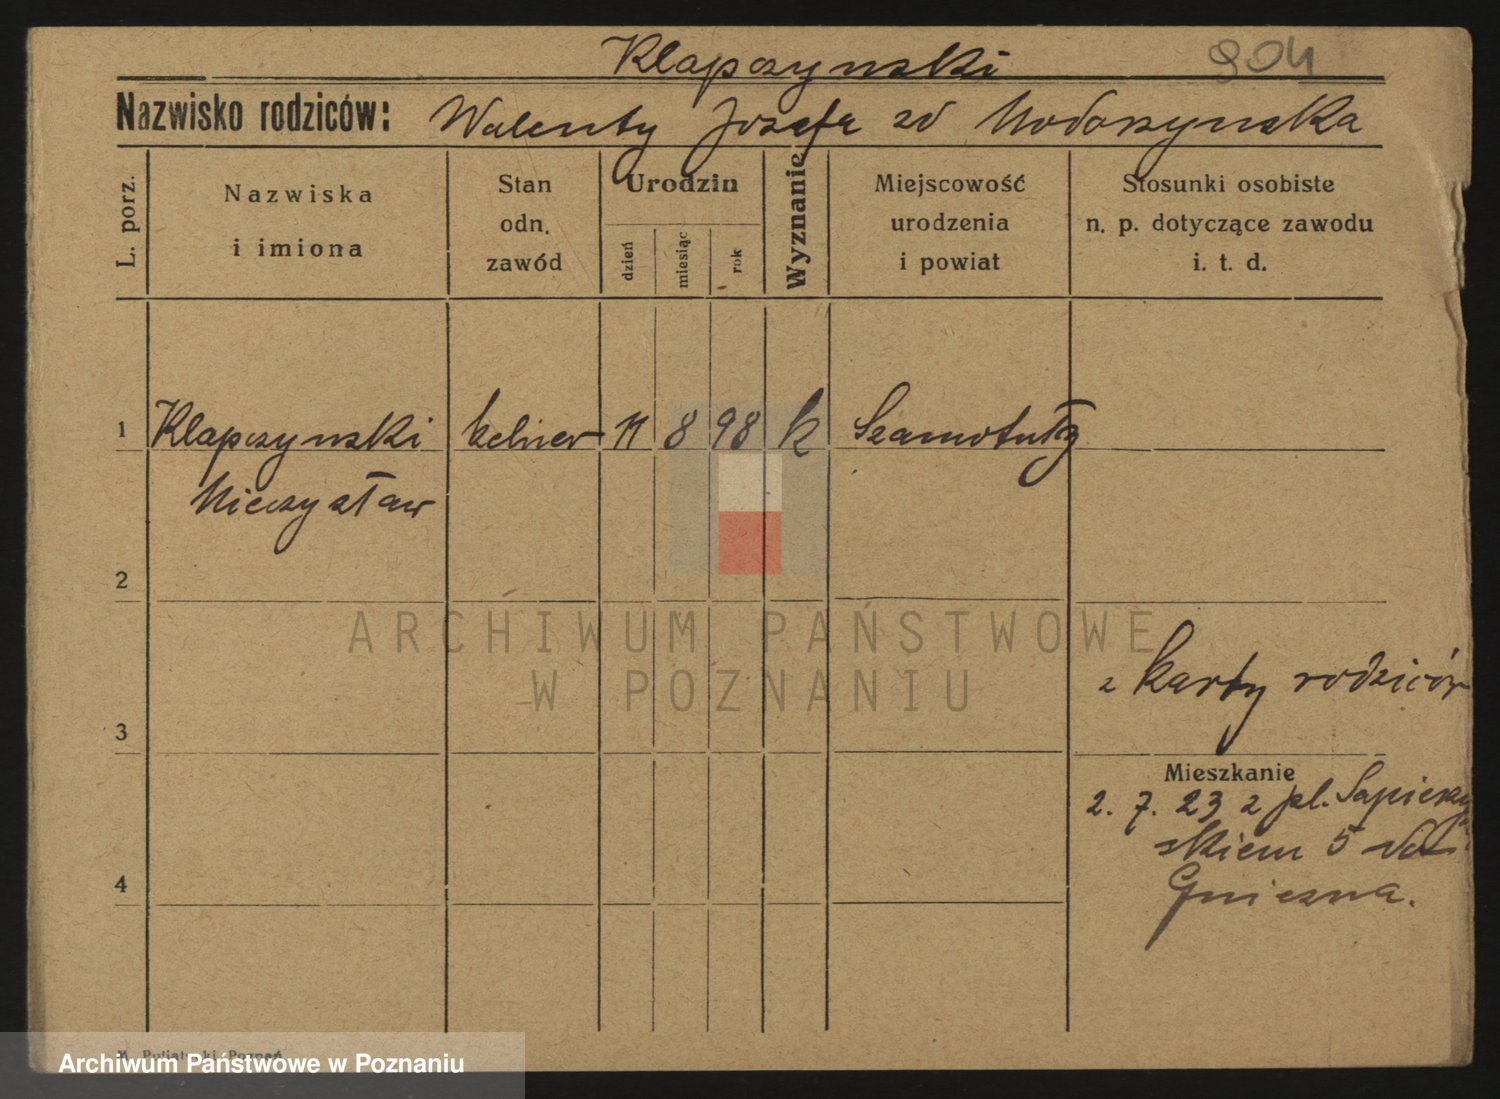 Klapczynski 904
Nazwisko rodziców: Walenty Józefa zd Modoszynska
L. porz.
Nazwiska
i imiona
Stan
odn.
zawód
Urodzin
dzień
miesiąc
rok
Wyznanie
Miejscowość
urodzenia
i powiat
Stosunki osobiste
n. p. dotyczące zawodu
i. t. d.
1 Klapczynski kelner 11 8 98 k Szamotuły
Mieczysław
2
ARCHIWUM PAŃSTWOWE
W POZNANIU
z karty rodziców
3
Mieszkanie
2. 7. 23 z pl. Sapieży
skiem 5 do
4
Gniezna.
Archiwum Państwowe w Poznaniu